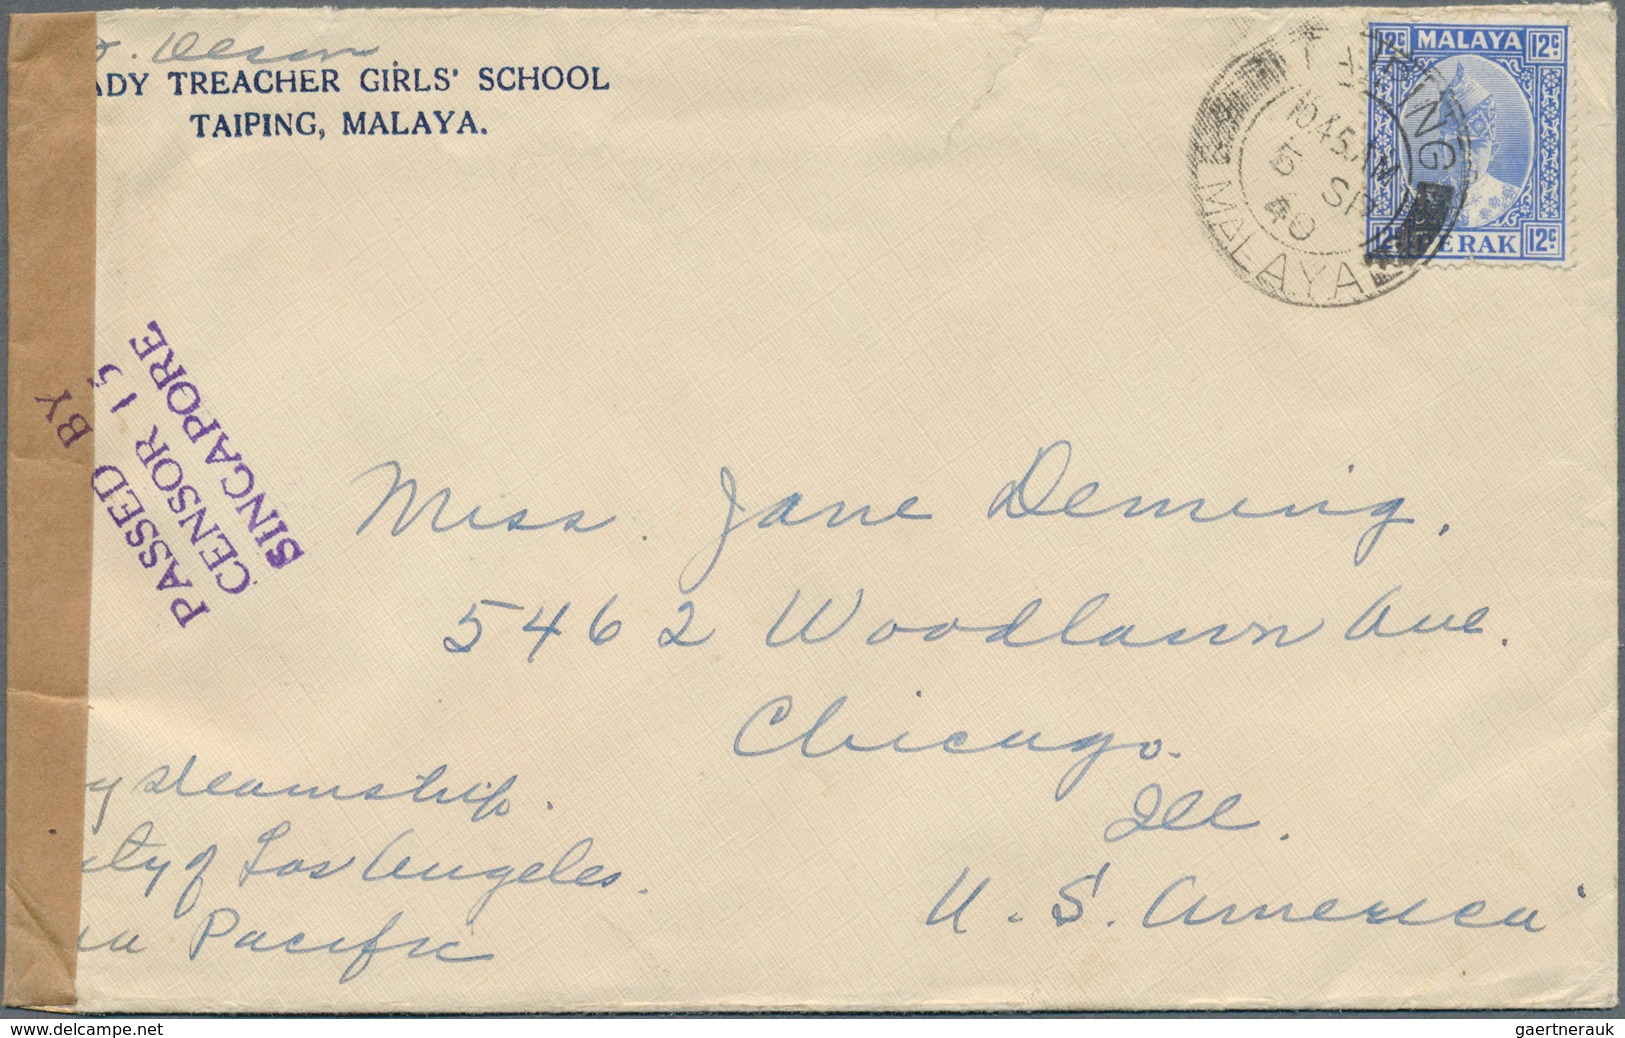 Olson
ADY TREACHER GIRLS' SCHOOL
TAIPING, MALAYA.
12c MALAYA 12c
12c PERAK 12c
TAIPING
10.45 AM
5 SP
40
MALAYA
PASSED BY
CENSOR 15
SINGAPORE
Miss. Jane Deming,
5462 Woodlawn Ave.
Chicago.
Ill.
U.S. America
y steamship.
ity of Los Angeles.
ia Pacific
www.delcampe.net
gaertnerauk